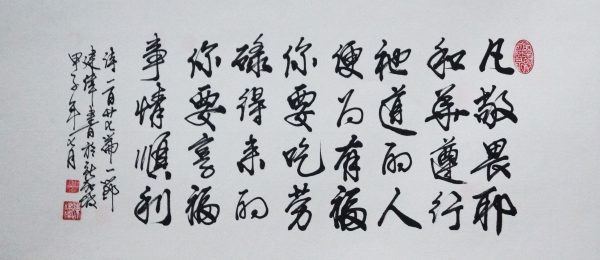 凡敬畏耶
和华遵行
祂道的人
便为有福
你要吃劳
碌得来的
你要享福
事情順利
诗一百廿八篇一節
建書於新加坡
甲子年七月